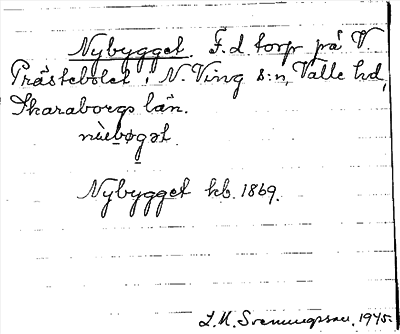 Nybygget. F.d. torp på V.
Prästebolet i N Ving s:n, Valle hd,
Skaraborgs län.
nùebøgət
Nybygget kb. 1869.
L.M. Svenungsson. 1945.